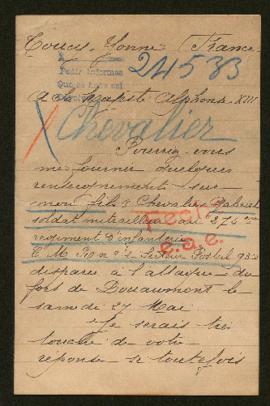 Toucy - Yonne - (France
24583
A sa Majesté Alphonse XIII
Chevalier
Pourriez vous
me fournir quelques
renseignements sur
mon fils Chevalier Gabriel
soldat mitrailleur au
régiment d'infanterie
C. M. Secteur Postal
disparu à l'attaque du
fort de Douaumont le
samedi 27 Mai
Je serais très
touché de votre
réponse si toutefois